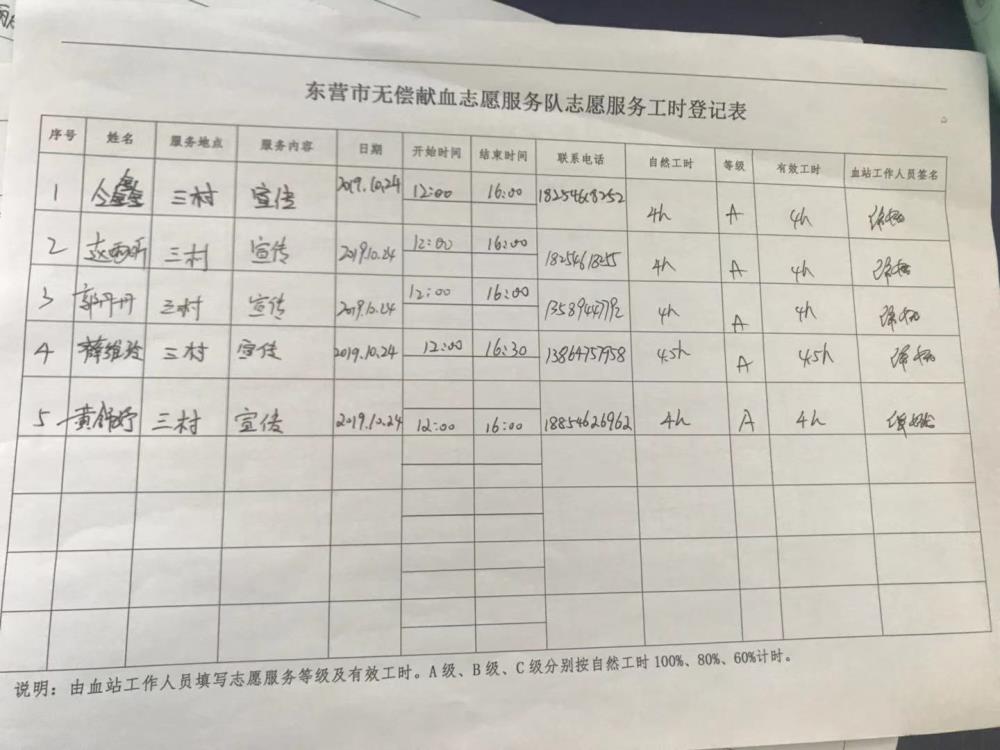 东营市无偿献血志愿服务队志愿服务工时登记表
序号 姓名 服务地点 服务内容 日期 开始时间 结束时间 联系电话 自然工时 等级 有效工时 血站工作人员签名
1 三村 宣传 2019.10.24 12:00 16:00 18254618252 4h A 4h
2 三村 宣传 2019.10.24 12:00 16:00 18254618255 4h A 4h
3 郭丹丹 三村 宣传 2019.10.24 12:00 16:00 13589447792 4h A 4h
4 薛维玲 三村 宣传 2019.10.24 12:00 16:30 13864757958 4.5h A 4.5h
5 三村 宣传 2019.10.24 12:00 16:00 18854626962 4h A 4h
说明：由血站工作人员填写志愿服务等级及有效工时。A级、B级、C级分别按自然工时100%、80%、60%计时。